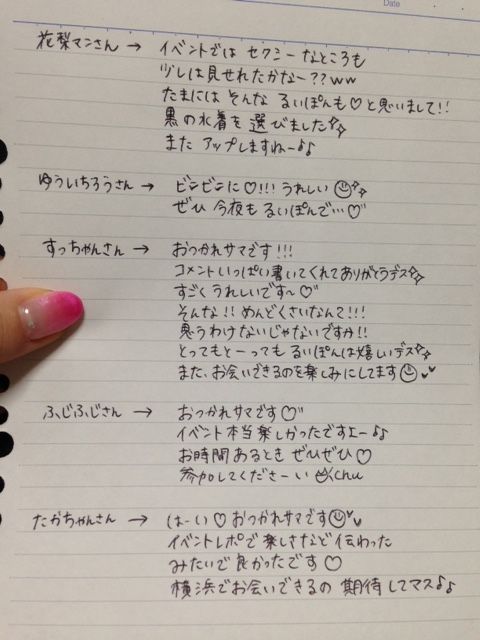 Date
花梨マンさん → イベントでは セクシー なところも
少しは見せれたかなー??ww
たまには そんな るいぽんも♡と思いまして!!
黒の水着を 選びました✨
また アップしますねー♪♪
ゆういちろうさん → ビンビンに♡!!! うれしい☺✨
ぜひ 今夜も るいぽんで…♡"
すっちゃんさん → おつかれサマです!!!
コメントいっぱい書いてくれてありがとうデス✨
すごく うれしいです〜♡"
そんな!! めんどくさいなんて!!!
思うわけないじゃないですか!!
とってもとーっても るいぽんは嬉しいデス✨
また、お会いできるのを楽しみにしてます☺♥♥
ふじふじさん → おつかれサマです♡"
イベント本当楽しかったですよー♪♪
お時間あるとき ぜひぜひ♡
参加してくださーい Chu
たかちゃんさん → はーい♡おつかれサマです☺♥♥
イベントレポで楽しさなど伝わった
みたいで良かったです♡
横浜でお会いできるの 期待してマス♪♪